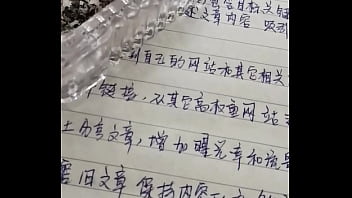 包含目标关键
述文章内容 吸引
到自己的网站和其它相关
链接，从其它高权重网站
上分享文章，增加曝光率和流量
旧文章 保持内容